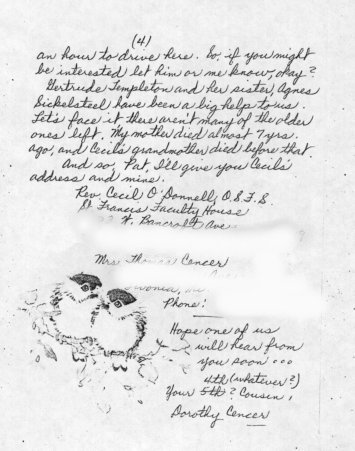 (4)
an hour to drive here. So, if you might
be interested let him or me know, okay?
Gertrude Templeton and her sister, Agnes
Sickelsteel have been a big help to us.
Let's face it there aren't many of the older
ones left. My mother died almost 7 yrs.
ago, and Cecil's grandmother died before that.
And so, Pat, I'll give you Cecil's
address and mine.
Rev. Cecil O'Donnell, O.S.F.S.
St. Francis Faculty House
W. Bancroft Ave
Mrs. Thomas Cencer
Phone:
Hope one of us
will hear from
you soon ...
4th (whatever?)
Your 5th? Cousin,
Dorothy Cencer